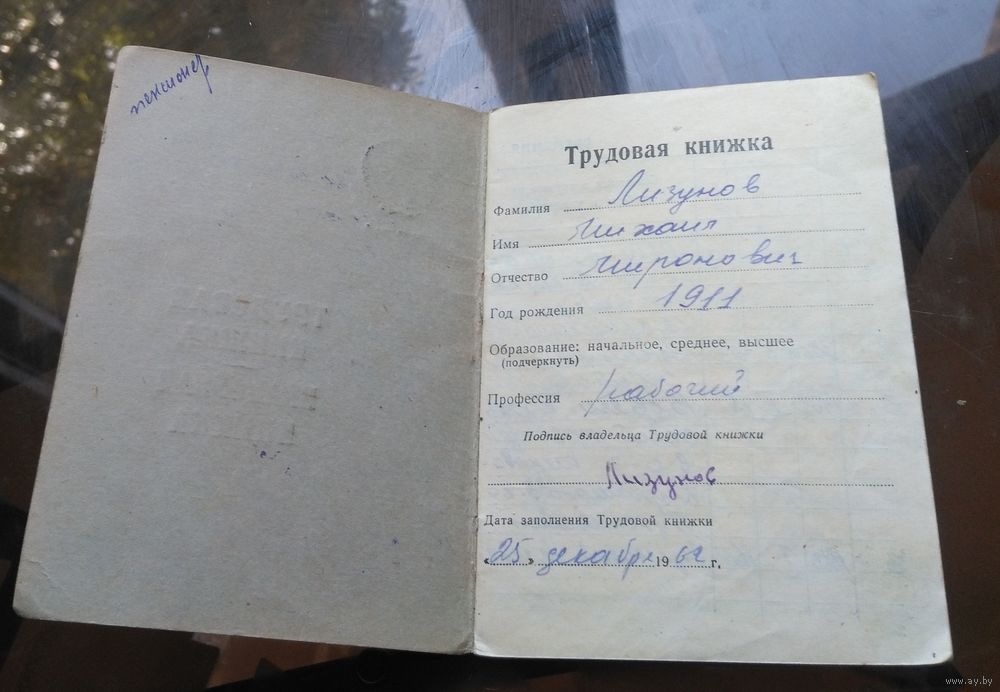 пенсионер
Трудовая книжка
Фамилия Лизунов
Имя Михаил
Отчество Миронович
Год рождения 1911
Образование: начальное, среднее, высшее
(подчеркнуть)
Профессия рабочий
Подпись владельца Трудовой книжки
Лизунов
Дата заполнения Трудовой книжки
«25» декабря 1962 г.
www.ay.by